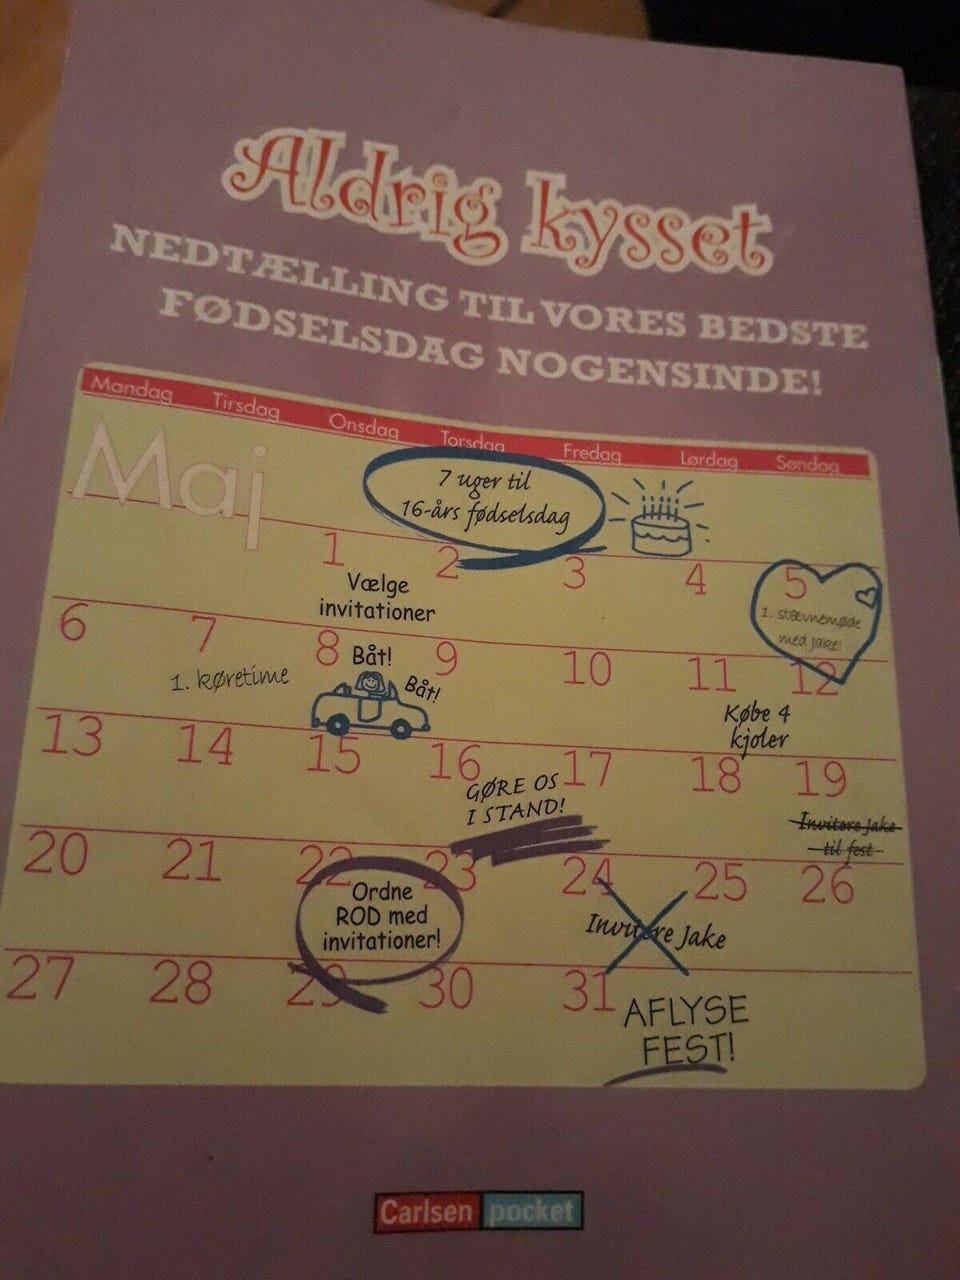 Aldrig kysset
NEDTÆLLING TIL VORES BEDSTE
FØDSELSDAG NOGENSINDE!
Mandag Tirsdag Onsdag Torsdag Fredag Lørdag Søndag
Maj
7 uger til
16-års fødselsdag
1 2 3 4 5
Vælge
invitationer
1. stævnemøde
med Jake!
6 7 8 9 10 11 12
1. køretime
Båt!
Båt!
Købe 4
kjoler
13 14 15 16 17 18 19
GØRE OS
I STAND!
Invitere Jake
til fest
20 21 22 23 24 25 26
Ordne
ROD med
invitationer!
Invitere Jake
27 28 29 30 31
AFLYSE
FEST!
Carlsen pocket